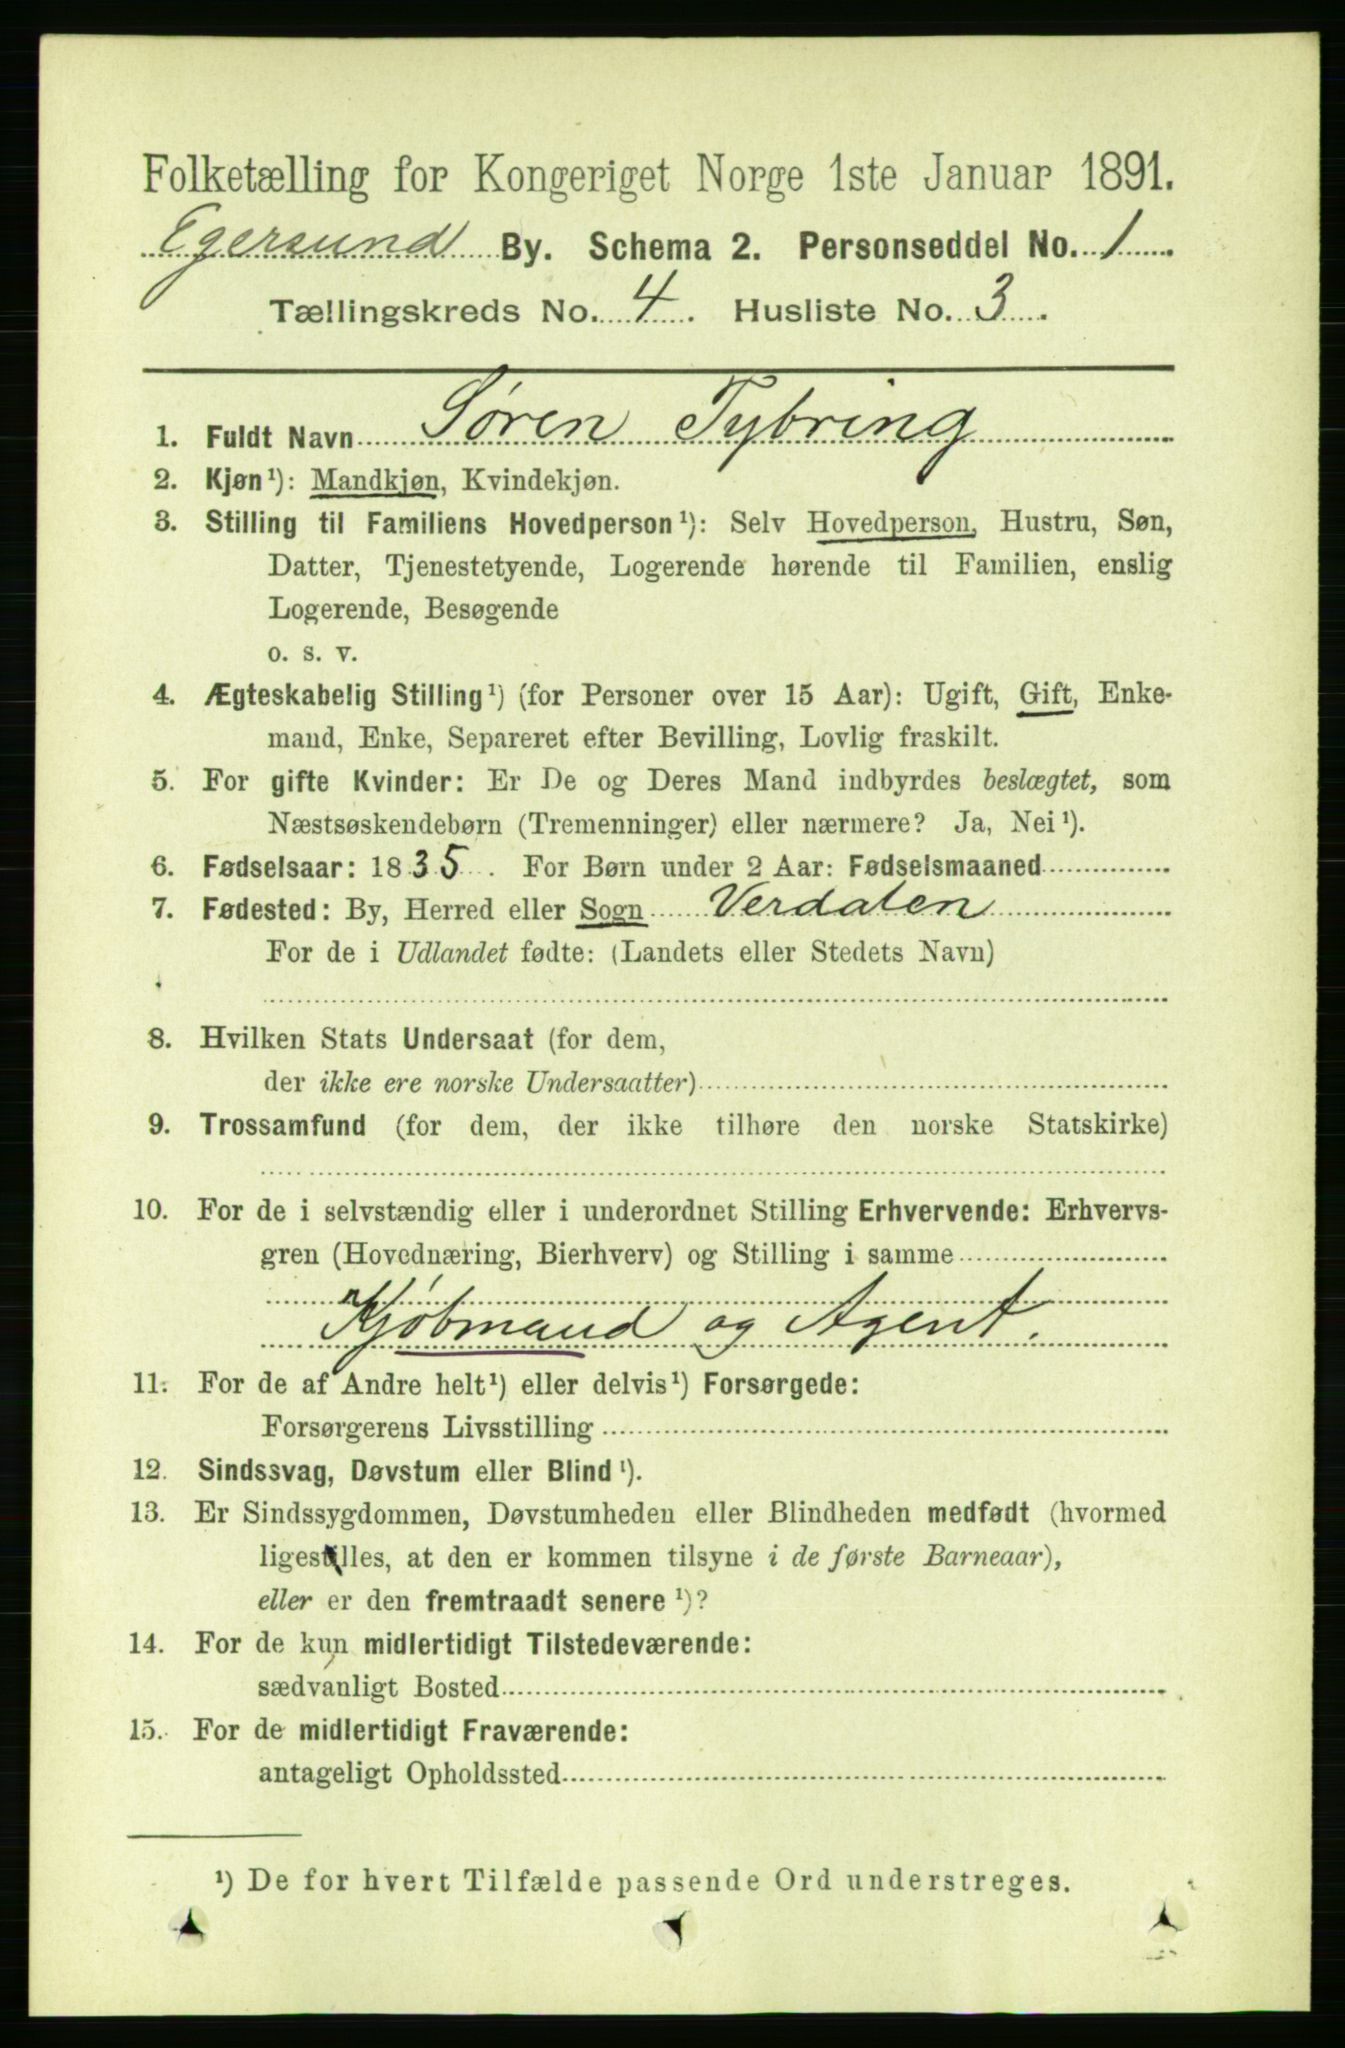 Folketælling for Kongeriget Norge 1ste Januar 1891.
Egersund By. Schema 2. Personseddel No. 1
Tællingskreds No. 4. Husliste No. 3.
1. Fuldt Navn Søren Tybring
2. Kjøn¹): Mandkjøn, Kvindekjøn.
3. Stilling til Familiens Hovedperson¹): Selv Hovedperson, Hustru, Søn,
Datter, Tjenestetyende, Logerende hørende til Familien, enslig
Logerende, Besøgende
o. s. v.
4. Ægteskabelig Stilling¹) (for Personer over 15 Aar): Ugift, Gift, Enke-
mand, Enke, Separeret efter Bevilling, Lovlig fraskilt.
5. For gifte Kvinder: Er De og Deres Mand indbyrdes beslægtet, som
Næstsøskendebørn (Tremenninger) eller nærmere? Ja, Nei¹).
6. Fødselsaar: 1835. For Børn under 2 Aar: Fødselsmaaned
7. Fødested: By, Herred eller Sogn Verdalen
For de i Udlandet fødte: (Landets eller Stedets Navn)
8. Hvilken Stats Undersaat (for dem,
der ikke ere norske Undersaatter)
9. Trossamfund (for dem, der ikke tilhøre den norske Statskirke)
10. For de i selvstændig eller i underordnet Stilling Erhvervende: Erhvervs-
gren (Hovednæring, Bierhverv) og Stilling i samme
Kjøbmand og Agent.
11. For de af Andre helt¹) eller delvis¹) Forsørgede:
Forsørgerens Livsstilling
12. Sindssvag, Døvstum eller Blind¹).
13. Er Sindssygdommen, Døvstumheden eller Blindheden medfødt (hvormed
ligestilles, at den er kommen tilsyne i de første Barneaar),
eller er den fremtraadt senere¹)?
14. For de kun midlertidigt Tilstedeværende:
sædvanligt Bosted
15. For de midlertidigt Fraværende:
antageligt Opholdssted
¹) De for hvert Tilfælde passende Ord understreges.